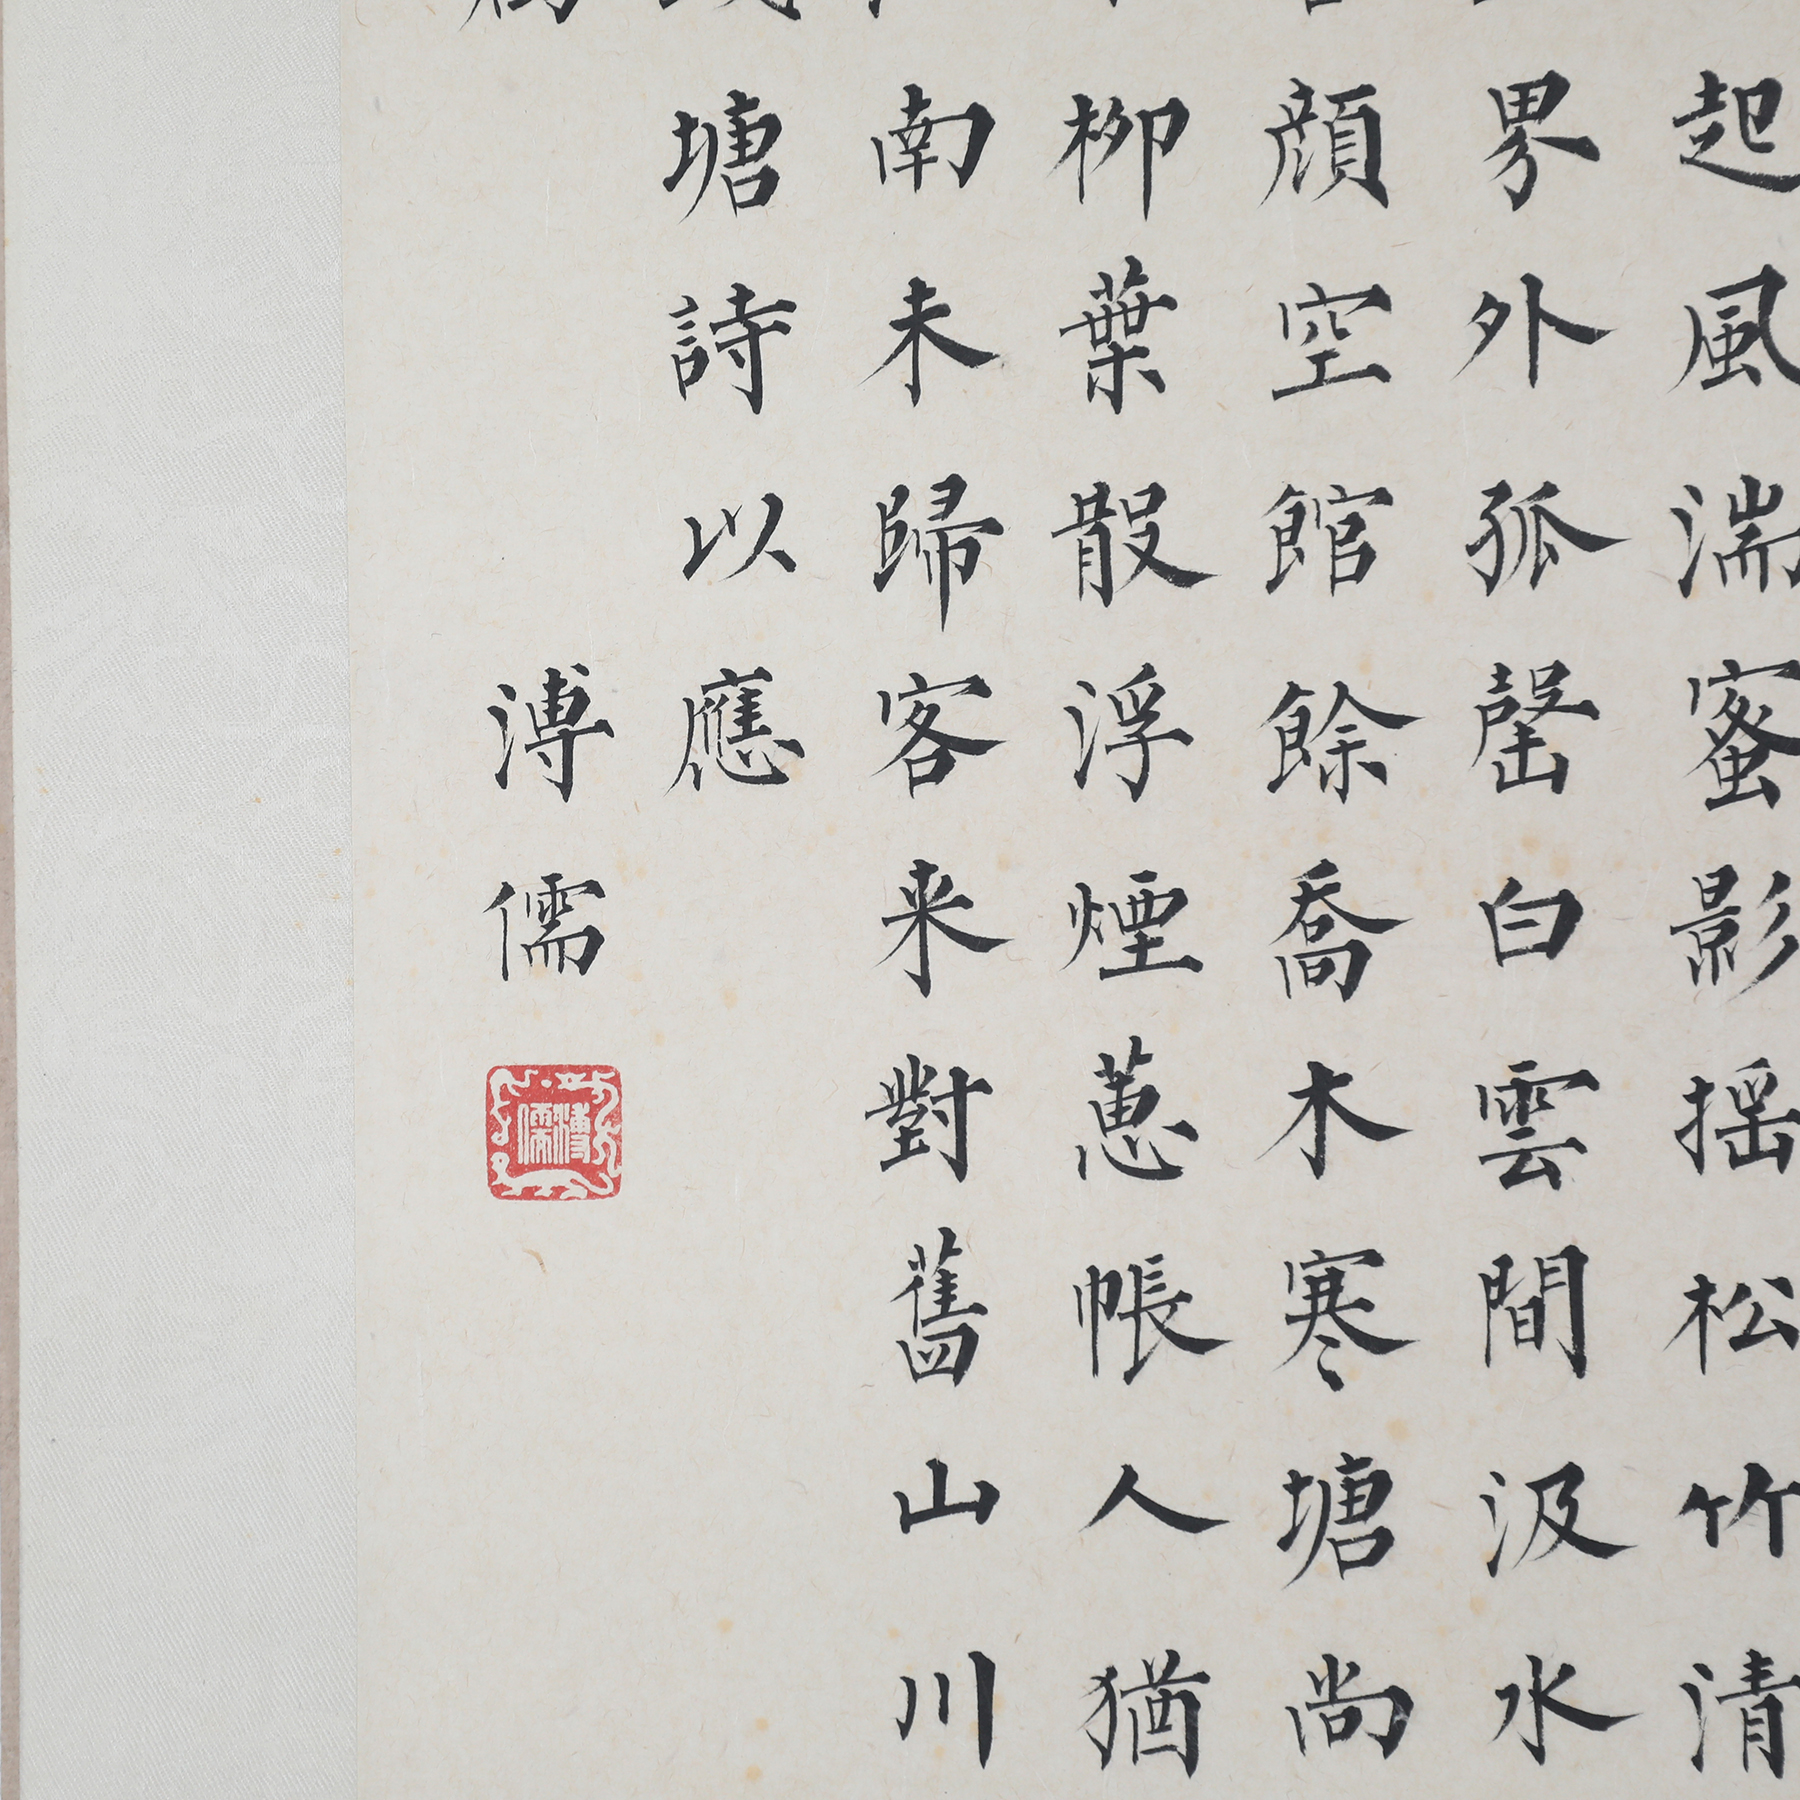 起風湍蜜影搖松竹清
界外孤罄白雲間汲水
顏空館餘喬木寒塘尚
柳葉散浮煙蕙帳人猶
南未歸客来對舊山川
塘詩以應
溥儒
溥儒